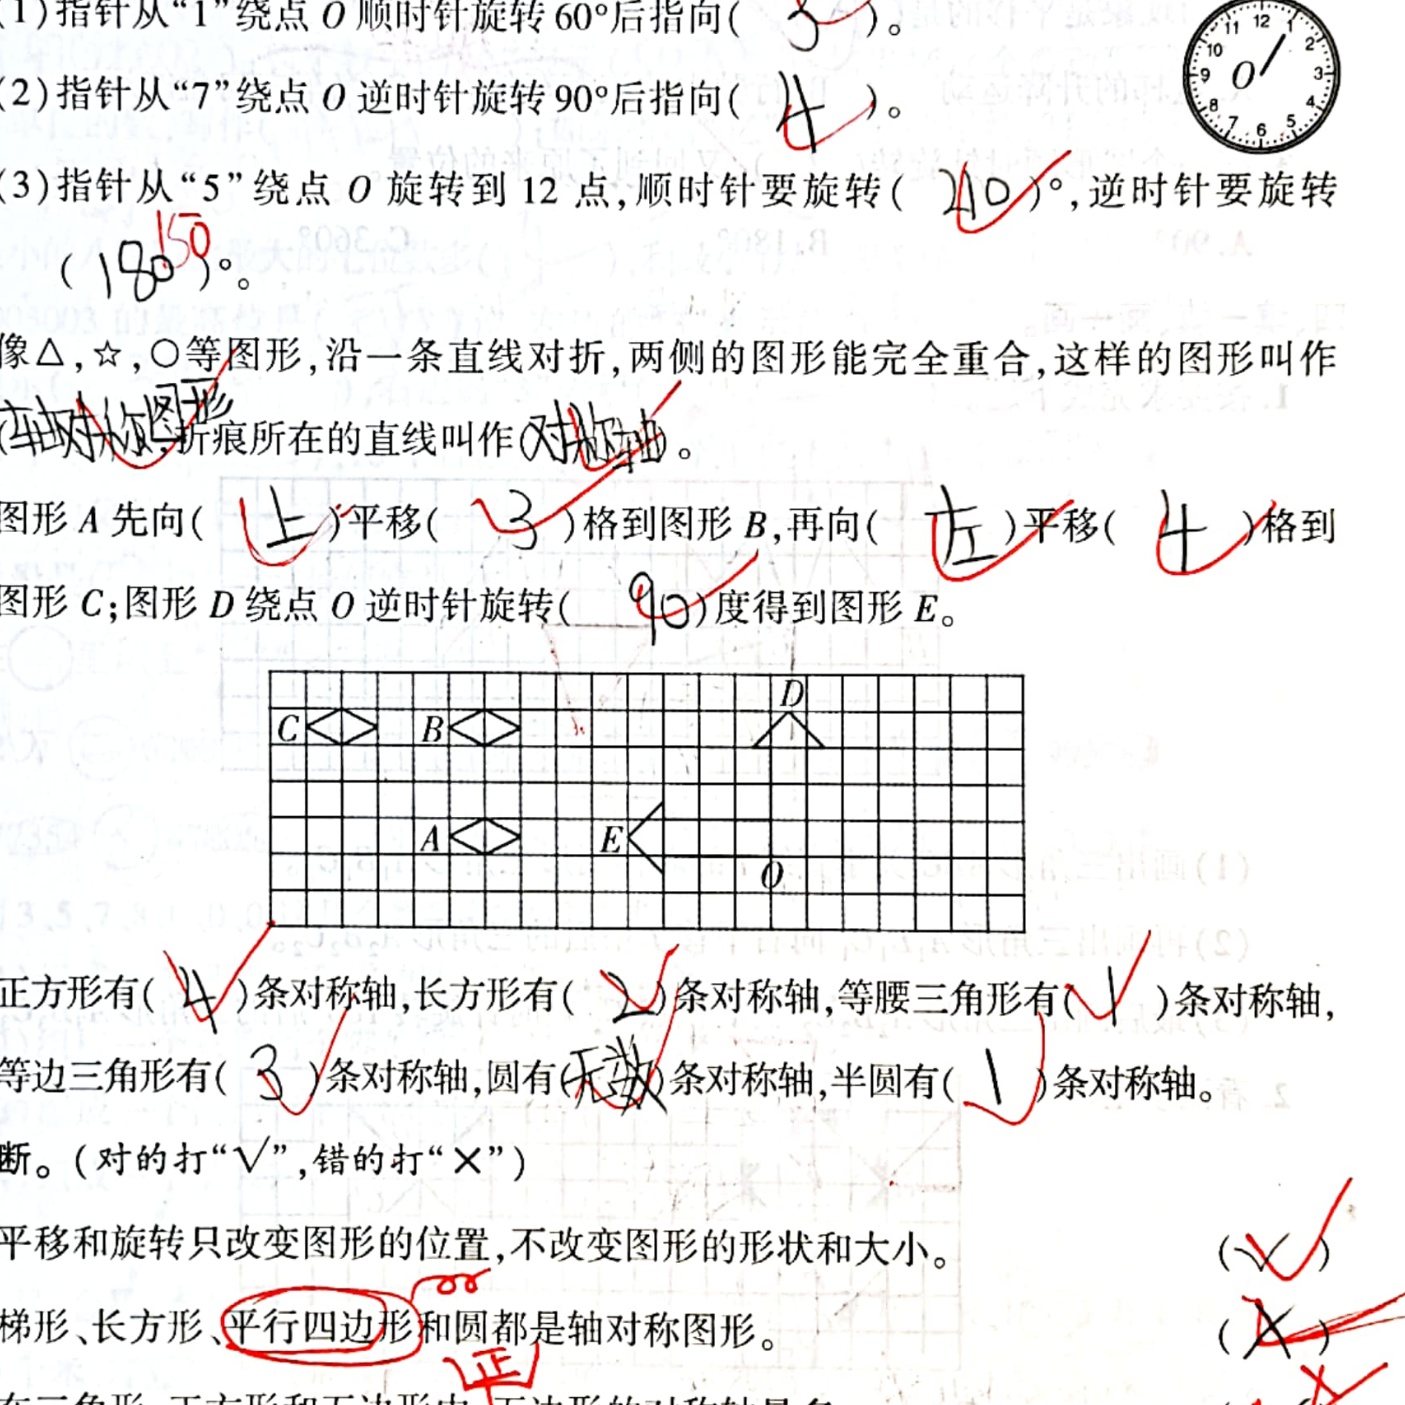 (1)指针从“1”绕点 O 顺时针旋转 60°后指向( 3 )。
(2)指针从“7”绕点 O 逆时针旋转 90°后指向( 4 )。
(3)指针从“5”绕点 O 旋转到 12 点,顺时针要旋转( 210 )°,逆时针要旋转
150
( 180 )°。
12 1 2 3 4 5 6 7 8 9 10 11 O
像△,☆,○等图形,沿一条直线对折,两侧的图形能完全重合,这样的图形叫作
(轴对称图形),折痕所在的直线叫作(对称轴)。
图形 A 先向( 上 )平移( 3 )格到图形 B,再向( 左 )平移( 4 )格到
图形 C;图形 D 绕点 O 逆时针旋转( 90 )度得到图形 E。
D
C B
A E
O
正方形有( 4 )条对称轴,长方形有( 2 )条对称轴,等腰三角形有( 1 )条对称轴,
等边三角形有( 3 )条对称轴,圆有(无数)条对称轴,半圆有( 1 )条对称轴。
断。(对的打“√”,错的打“×”)
平移和旋转只改变图形的位置,不改变图形的形状和大小。 (√)
梯形、长方形、平行四边形和圆都是轴对称图形。 (×)
正